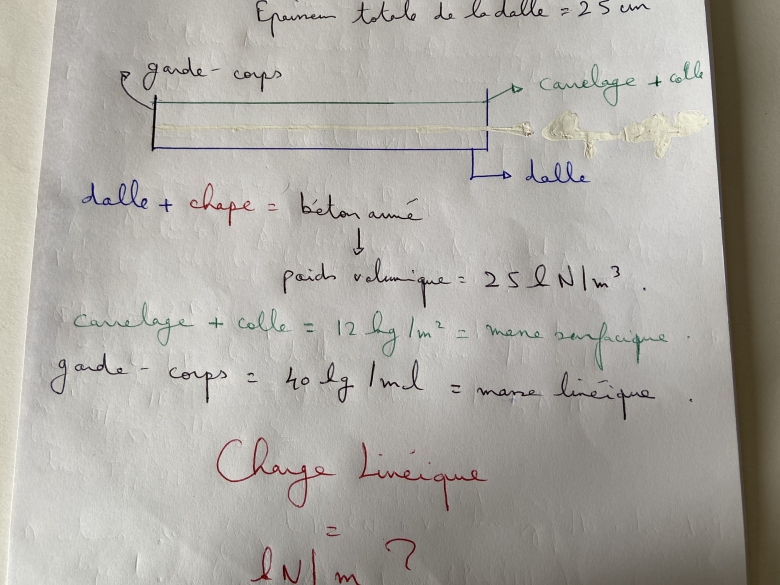 Epaisseur totale de la dalle = 25 cm
garde-corps
carrelage + colle
dalle
dalle + chape = béton armé
poids volumique = 25 kN/m³.
carrelage + colle = 12 kg/m² = masse surfacique.
garde-corps = 40 kg/ml = masse linéique.
Charge Linéique
=
kN/m ?